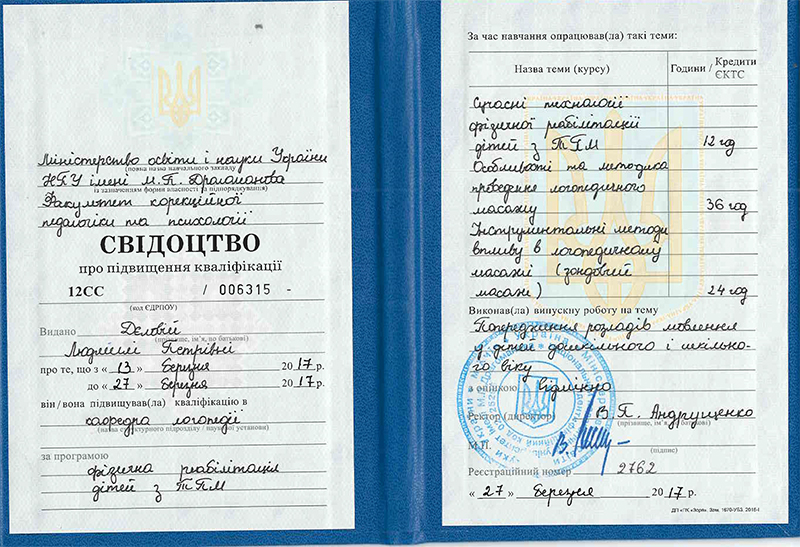 Міністерство освіти і науки України
(повна назва навчального закладу
НПУ імені М.П. Драгоманова
із зазначенням форми власності та підпорядкування)
Факультет корекційної
педагогіки та психології
СВІДОЦТВО
про підвищення кваліфікації
12СС / 006315 -
(код ЄДРПОУ)
Видано Дєловій
(прізвище, ім'я, по батькові)
Людмилі Петрівні
про те, що з « 13 » березня 2017 р.
до « 27 » березня 2017 р.
він/вона підвищував(ла) кваліфікацію в
кафедра логопедії
(назва структурного підрозділу / наукової установи)
за програмою
фізична реабілітація
дітей з ТПМ
За час навчання опрацював(ла) такі теми:
Назва теми (курсу) Години / Кредити ЄКТС
Сучасні технології
фізичної реабілітації
дітей з ТПМ 12 год
Особливості та методика
проведине логопедичного
масажу 36 год
Інструментальні методи
впливу в логопедичному
масажі (зондовий
масаж) 24 год
Виконав(ла) випускну роботу на тему
Попередження розладів мовлення
у дітей дошкільного і шкільно-
го віку
з оцінкою відмінно
Ректор (директор) В.П. Андрущенко
(прізвище, ім'я, по батькові)
М.П.
(підпис)
Реєстраційний номер 2762
« 27 » березня 2017 р.
ДП «ПК «Зоря». Зам. 1670-УБЗ. 2016-І